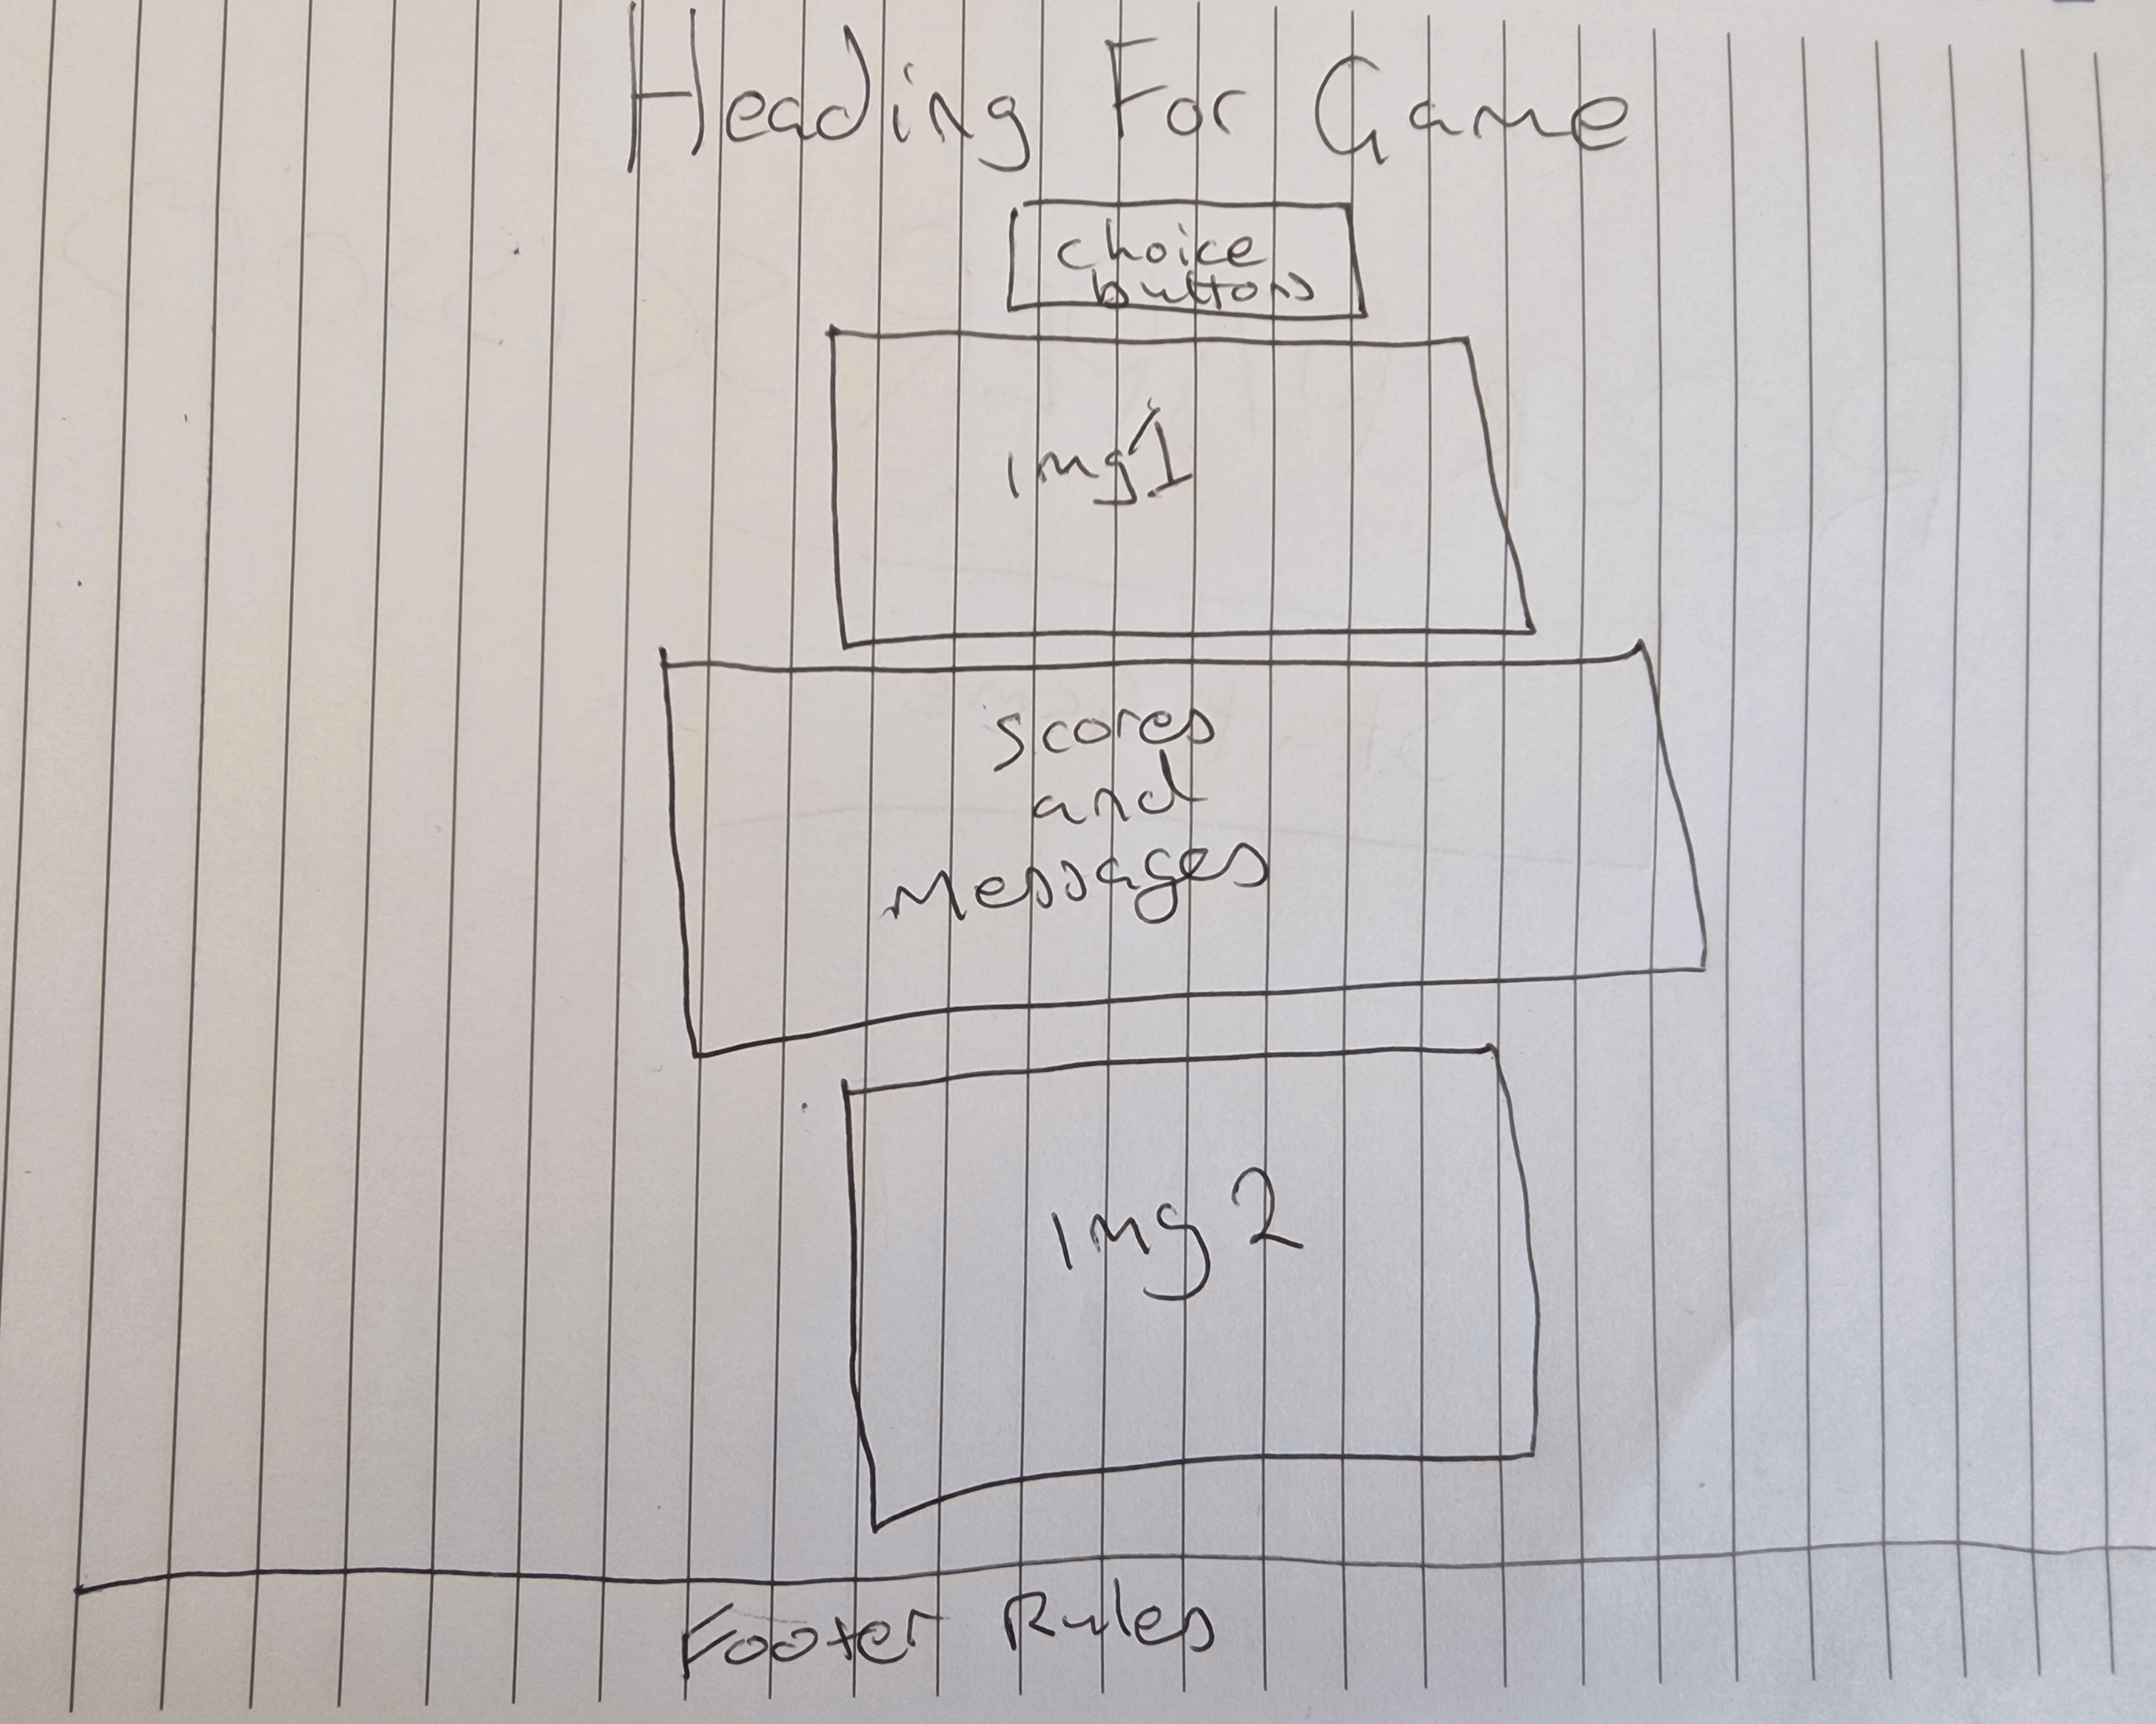 Heading For Game
choice
buttons
img1
scores
and
messages
img 2
Footer Rules